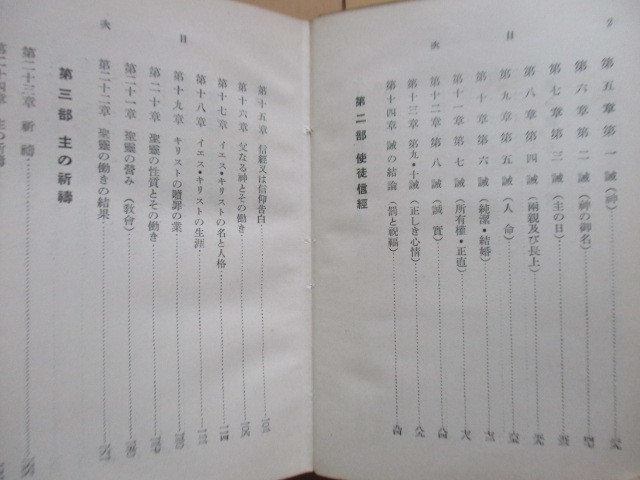 2
目 次
第五章 第一誡(神)
第六章 第二誡(神の御名)
第七章 第三誡(主の日)
第八章 第四誡(兩親及び長上)
第九章 第五誡(人命)
第十章 第六誡(純潔・結婚)
第十一章 第七誡(所有權・正直)
第十二章 第八誡(誠實)
第十三章 第九・十誡(正しき心情)
第十四章 誡の結論(罰と祝福)
第二部 使徒信經
目 次
第十五章 信經又は信仰告白
第十六章 父なる神とその働き
第十七章 イエス・キリストの名と人格
第十八章 イエス・キリストの生涯
第十九章 キリストの贖罪の業
第二十章 聖靈の性質とその働き
第二十一章 聖靈の營み(教會)
第二十二章 聖靈の働きの結果
第三部 主の祈禱
第二十三章 祈禱
第二十四章 主の祈禱